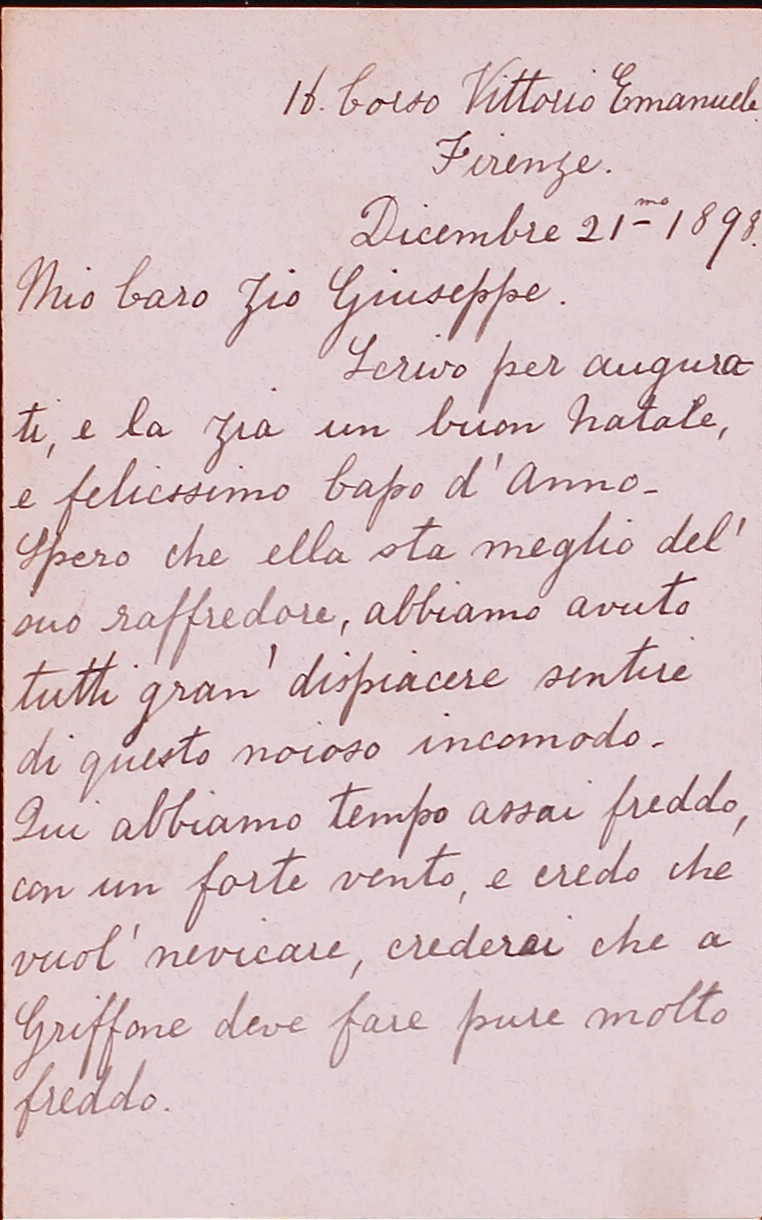 16. Corso Vittorio Emanuele
Firenze.
Dicembre 21-mo 1898.
Mio Caro Zio Giuseppe.
Scrivo per augura
ti, e la Zia un buon Natale,
e felicssimo Capo d'Anno-
Spero che ella sta meglio del'
suo raffredore, abbiamo avuto
tutti gran' dispiacere sentire
di questo noioso incomodo-
Qui abbiamo tempo assai freddo,
con un forte vento, e credo che
vuol' nevicare, crederei che a
Griffone deve fare pure molto
freddo.